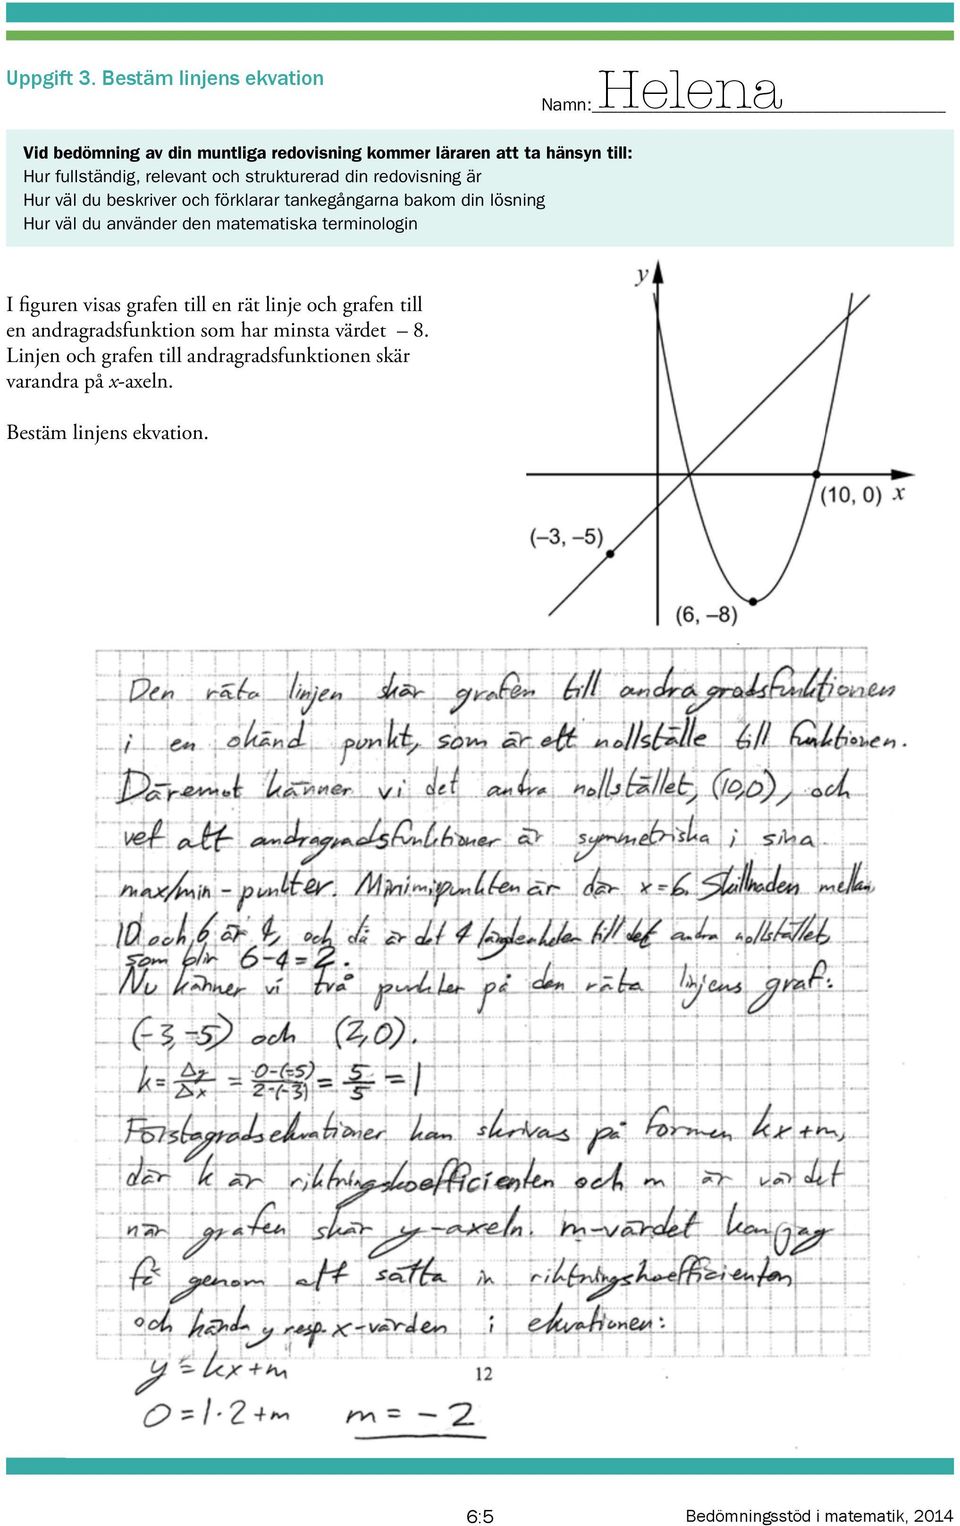 Uppgift 3. Bestäm linjens ekvation
Namn: Helena
Vid bedömning av din muntliga redovisning kommer läraren att ta hänsyn till:
Hur fullständig, relevant och strukturerad din redovisning är
Hur väl du beskriver och förklarar tankegångarna bakom din lösning
Hur väl du använder den matematiska terminologin
I figuren visas grafen till en rät linje och grafen till
en andragradsfunktion som har minsta värdet – 8.
Linjen och grafen till andragradsfunktionen skär
varandra på x-axeln.
Bestäm linjens ekvation.
y
(10, 0) x
(–3, –5)
(6, –8)
Den räta linjen skär grafen till andragradsfunktionen
i en okänd punkt, som är ett nollställe till funktionen.
Däremot känner vi det andra nollstället, (10,0), och
vet att andragradsfunktioner är symmetriska i sina
max/min-punkter. Minimipunkten är där x=6. Skillnaden mellan
10 och 6 är 4, och då är det 4 längdenheter till det andra nollstället,
som blir 6-4=2.
Nu känner vi två punkter på den räta linjens graf:
(-3,-5) och (2,0).
k = Δy/Δx = 0-(-5)/2-(-3) = 5/5 = 1
Förstagradsekvationer kan skrivas på formen kx+m,
där k är riktningskoefficienten och m är värdet
när grafen skär y-axeln. m-värdet kan jag
få genom att sätta in riktningskoefficienten
och kända y resp. x-värden i ekvationen:
y = kx+m
12
0 = 1·2+m m = -2
6:5 Bedömningsstöd i matematik, 2014